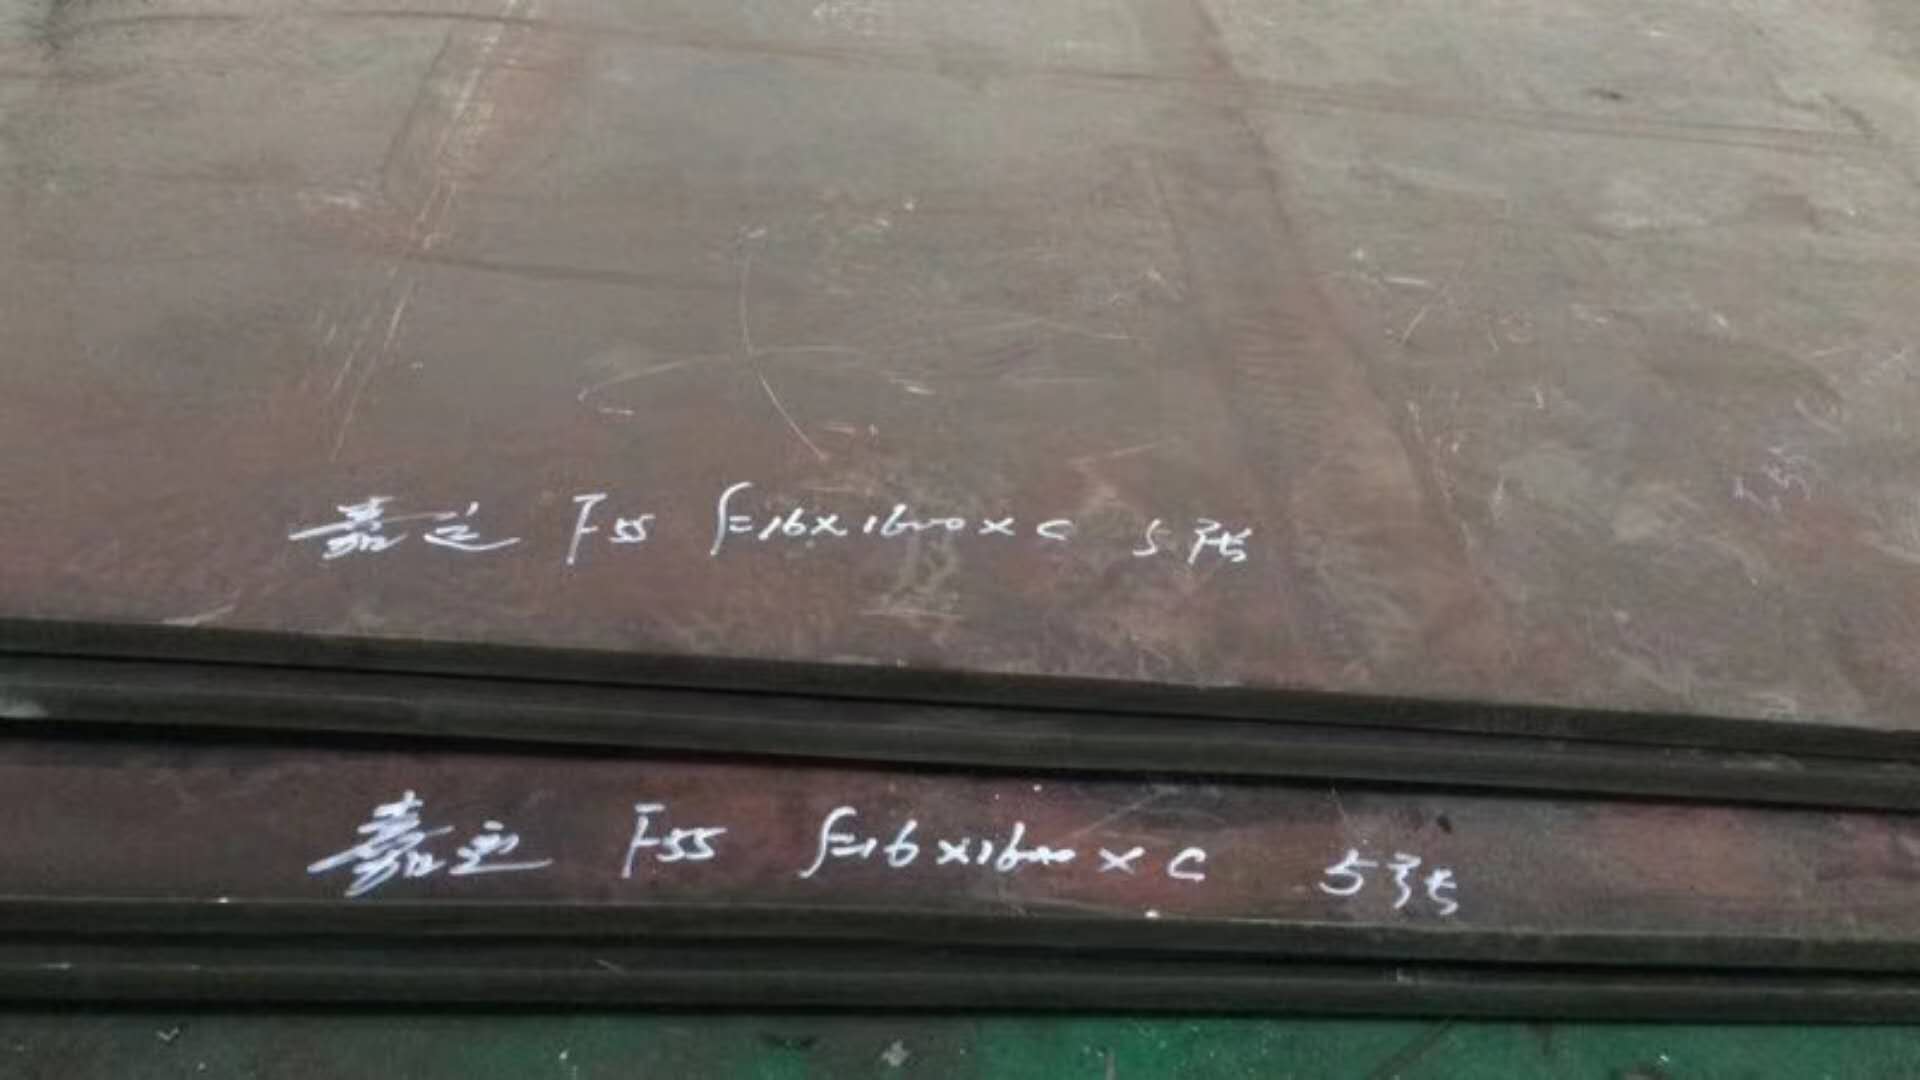 嘉定 F55 δ=16×1600×C 5张
嘉定 F55 δ=16×1600×C 5张